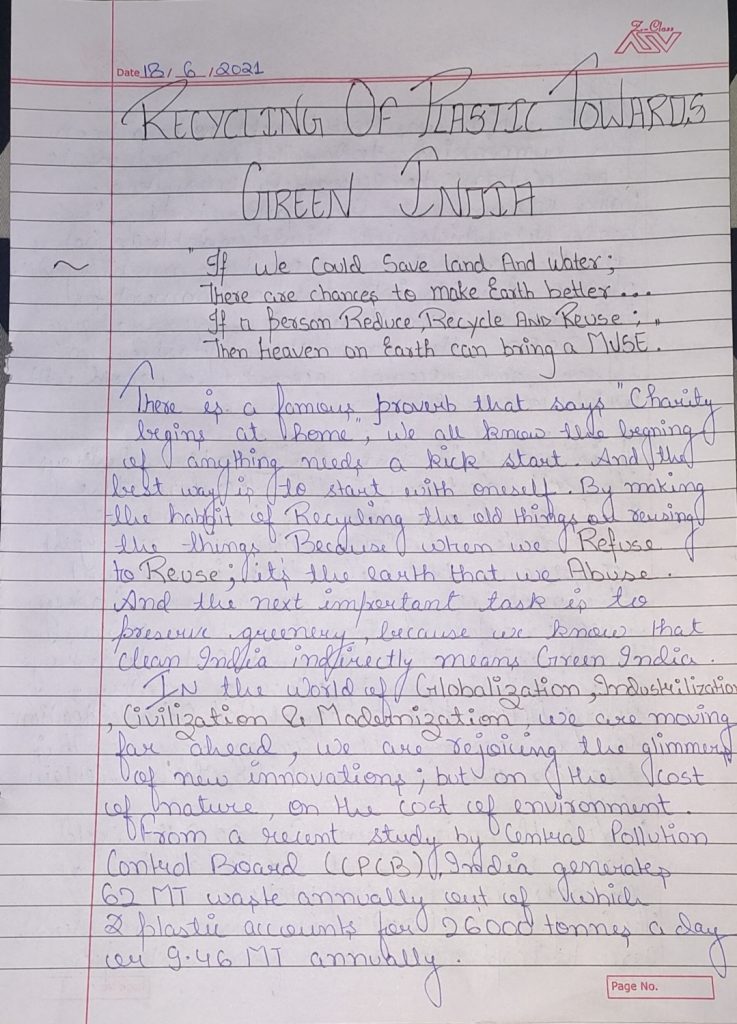 Zen Class
Date 18/6/2021
RECYCLING OF PLASTIC TOWARDS
GREEN INDIA
~ "If we could save land And water;
There are chances to make Earth better...
If a Person Reduce, Recycle AND REUSE; "
Then Heaven on Earth can bring a MUSE.
There is a famous proverb that says "Charity
begins at home", we all know the begning
of anything needs a kick start. And the
best way is to start with oneself. By making
the habbit of Recycling the old things or reusing
the things. Because when we Refuse
to Reuse; it's the earth that we Abuse.
And the next important task is to
preserve greenery, because we know that
clean India indirectly means Green India.
IN the world of Globalization, Industrilization
, Civilization & Modernization, we are moving
far ahead, we are rejoicing the glimmers
of new innovations; but on the cost
of nature, on the cost of environment.
From a recent study by Central Pollution
Control Board (CPCB), India generates
62 MT waste annually out of which
2 plastic accounts for 26000 tonnes a day
or 9.46 MT annually.
Page No.